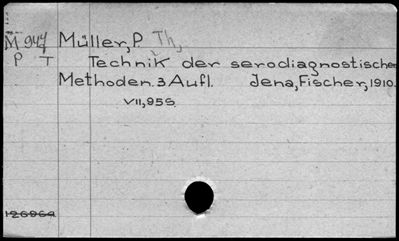 M947 Müller, P. Th,
P T Technik der serodiagnostischen
Methoden. 3 Aufl. Jena, Fischer, 1910.
VII, 95S.
126969